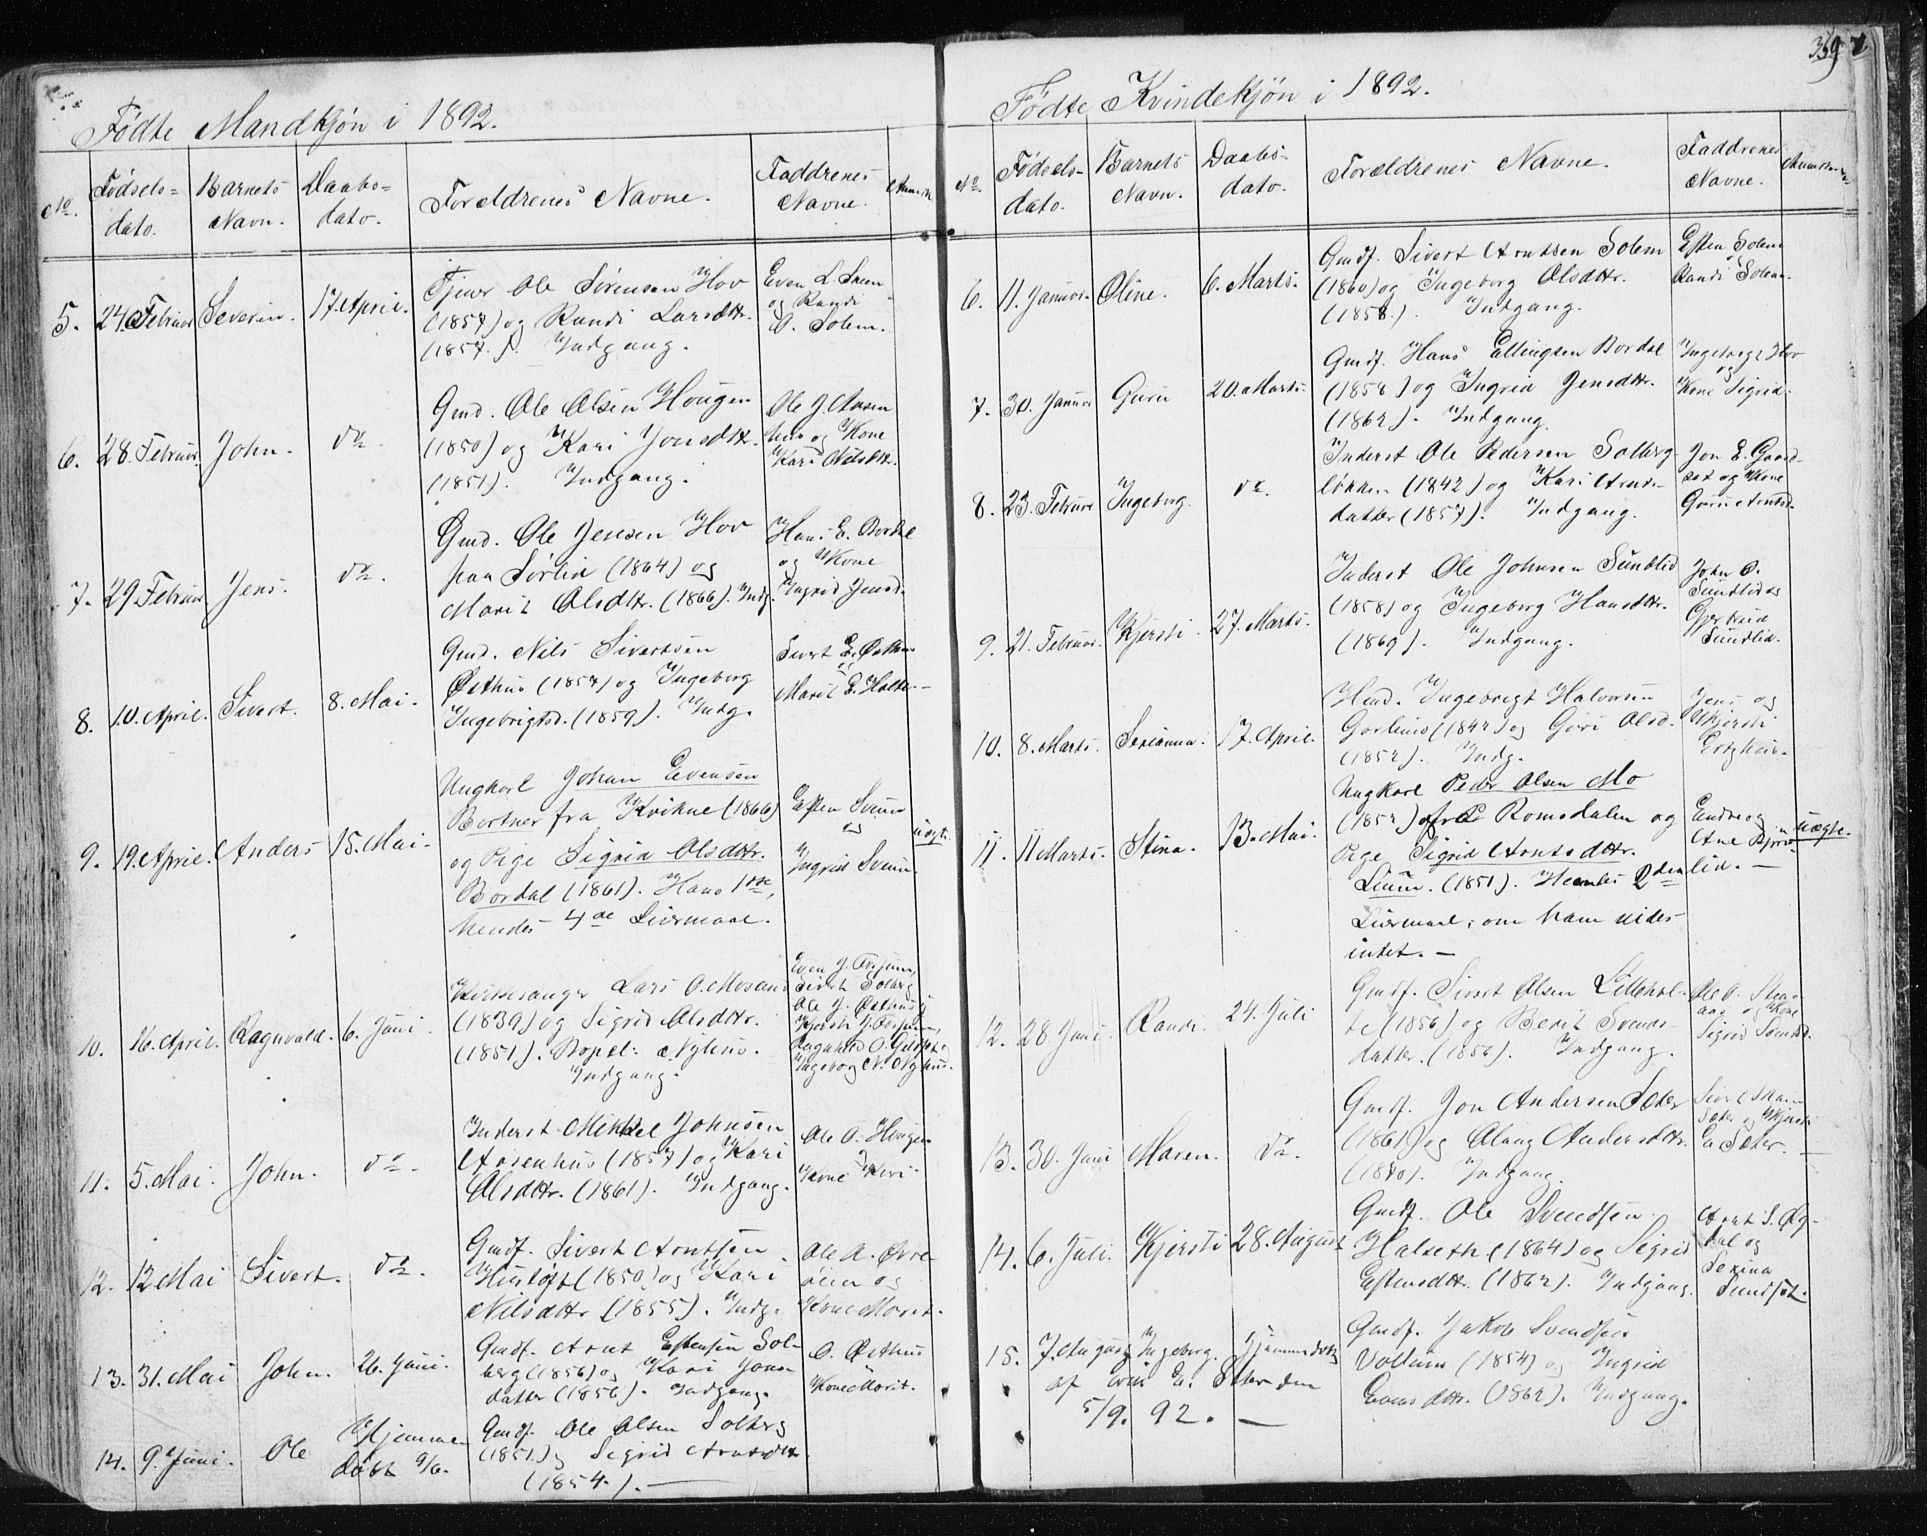 Fødte Mandkjøn i 1892.
No.
Fødsels-
dato.
Barnets
Navn.
Daabs-
dato.
Forældrenes Navne.
Faddrenes
Navne.
5.
24. Februar
Severin.
17. April.
Tjener Ole Sørensen Hov
(1857) og Randi Larsdttr.
(1857.). Indgang.
og Randi
O. Solem.
6.
28. Februar.
John.
do.
Gmd. Ole Olsen Hougen
(1850) og Kari Jonsdttr.
(1851). Indgang.
og Kone
Kari Nilsdttr.
7.
29. Februar
Jens.
do.
Gmd. Ole Jensen Hov
paa Sørlia (1864) og
Marit Olsdttr. (1866). Indg.
Hans E. Bordal
og Kone
Ingrid Jensd.
8.
10. April.
Sivert.
8. Mai.
Gmd. Nils Sivertsen
Østhus (1857) og Ingeborg
Ingebrigtsd. (1859). Indg.
Sivert E. Østhus
Marit E.
9.
19. April.
Anders
15. Mai.
Ungkarl Johan Evensen
Bortner fra Kvikne (1866)
og Pige Sigrid Olsdttr.
Bordal (1861). Hans 1ste,
hendes 4de Leiermaal.
Esten
og
Ingrid
uægte.
10.
16. April.
Ragnvald.
6. Juni.
Kirkesanger Lars O. Mosand
(1839) og Sigrid Olsdttr.
(1851). Bopæl: Nyhus.
Indgang.
Even J.
Sivert Solberg
Ole J. Østhus,
Kjersti J.
Ragnhild O.
Ingeborg N. Nyhus.
11.
5. Mai.
John.
do.
Inderst Mikkel Johnsen
Aasenhus (1857) og Kari
Olsdttr. (1861). Indgang.
Ole O. Hougen
Kone Kari.
12.
12 Mai
Sivert.
do.
Gmdf. Sivert Arntsen
(1850) og Kari
Nilsdttr (1855). Indg.
Ole A. Øvre-
og
Kone Marit.
13.
31. Mai
John.
26. Juni.
Gmdf. Arnt Estensen Sol-
berg (1856) og Kari Jons-
datter (1856). Indgang.
O. Østhus
Kone Marit.
14.
9. Juni.
Ole
Hjemme
døbt 9/6.
Gmdf. Ole Olsen Solberg
(1851) og Sigrid Arntsdttr
(1854.). —
359
Fødte Kvindekjøn i 1892.
No.
Fødsels-
dato.
Barnets
Navn.
Daabs-
dato.
Forældrenes Navne.
Faddrenes
Navne.
6.
11. Januar.
Oline.
6. Marts.
Gmdf. Sivert Arntsen Solem
(1860) og Ingeborg Olsdttr.
(1858.). Indgang.
Esten Solem
Randi Solem.
7.
30. Januar
Guru
20. Marts.
Gmdf. Hans Ellingsen Bordal
(1858) og Ingrid Jensdttr.
(1862). Indgang.
Ingebrigt Hov
og
Kone Sigrid.
8.
23. Februar
Ingeborg.
do.
Inderst Ole Pedersen Solberg-
løkken (1842) og Kari Arnts-
datter (1857). Indgang.
Jon E. Gaard-
set og Kone
Guru Arntsd.
9.
21. Februar.
Kjersti.
27. Marts.
Inderst Ole Johnsen Sundlid
(1858) og Ingeborg Hansdttr.
(1869). Indgang.
John O.
Sundlid og
Gjertrud
Sundlid.
10.
8. Marts.
Serianna.
17. April.
Ingebrigt Halvorsen
(1847) og Guri Olsd.
(1852). Indg.
Jens og
Kjersti
11.
11 Marts.
Stina.
13. Mai.
Ungkarl Peder Olsen Mo
(1852) fra Romsdalen og
Pige Sigrid Arntsdttr.
(1851). Hendes 2den
Leiermaal; om ham vides
intet. —
Endre og
Ane
lid. —
uægte.
12.
28. Juni.
Randi.
24. Juli
Gmdf. Sivert Olsen Lillehal-
te (1856) og Berit Svends-
datter. (1856). Indgang.
Ole O. Sten-
aas og Kone
Sigrid
13.
30. Juni
Maren.
do.
Gmdf. Jon Andersen Sæter
(1861) og Olaug Andersdttr.
(1870). Indgang.
Sæter og Kjersti
Sæter. —
14.
6. Juli.
Kjersti
28. August
Gmdf. Ole Svendsen
Halseth (1864) og Sigrid
Estensdttr. (1862). Indgang.
Arnt S. Øg-
dal og
Serina
Sundset.
15.
7. August
Ingeborg.
Hjemmedøbt
af Erik E. Sæter den
5/9. 92. —
Gmdf. Jakob Svendsen
Vollum (1854) og Ingrid
Evensdttr. (1862). Indgang.